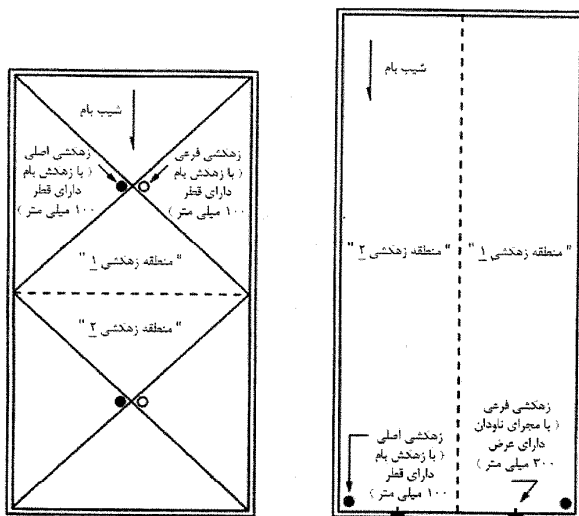 شیب بام
زهکشی اصلی
( با زهکش بام
دارای قطر
۱۰۰ میلی متر )
زهکشی فرعی
( با زهکش بام
دارای قطر
۱۰۰ میلی متر )
" منطقه زهکشی ۱ "
" منطقه زهکشی ۲ "
شیب بام
" منطقه زهکشی ۱ "
" منطقه زهکشی ۲ "
زهکشی فرعی
( با مجرای ناودان
دارای عرض
۳۰۰ میلی متر )
زهکشی اصلی
( با زهکش بام
دارای قطر
۱۰۰ میلی متر )